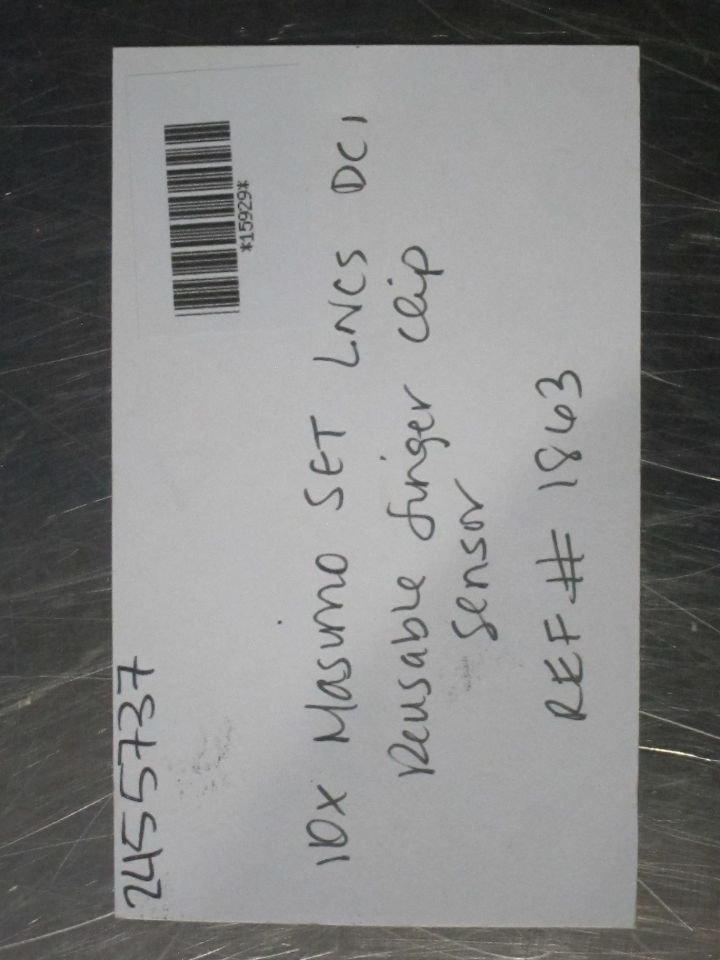 2455737
*15929*
10x Masimo SET LNCS DCI
Reusable finger clip
sensor
REF # 1863